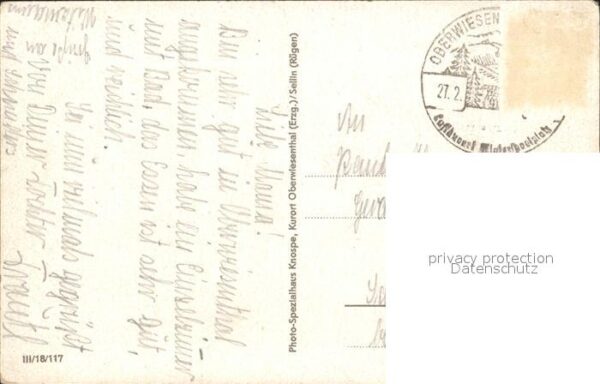 Liebe Mama!
Bin sehr gut in Oberwiesenthal
angekommen, habe ein Einzelzimmer
mit Bad, das Essen ist sehr gut,
und reichlich.
Sei nun vielmals gegrüßt
von Deiner Tochter Traudl
Grüße an
und
Photo-Spezialhaus Knospe, Kurort Oberwiesenthal (Erzg.)/Sellin (Rügen)
III/18/117
An
OBERWIESEN
27.2.
Luftkurort Wintersportplatz
privacy protection
Datenschutz